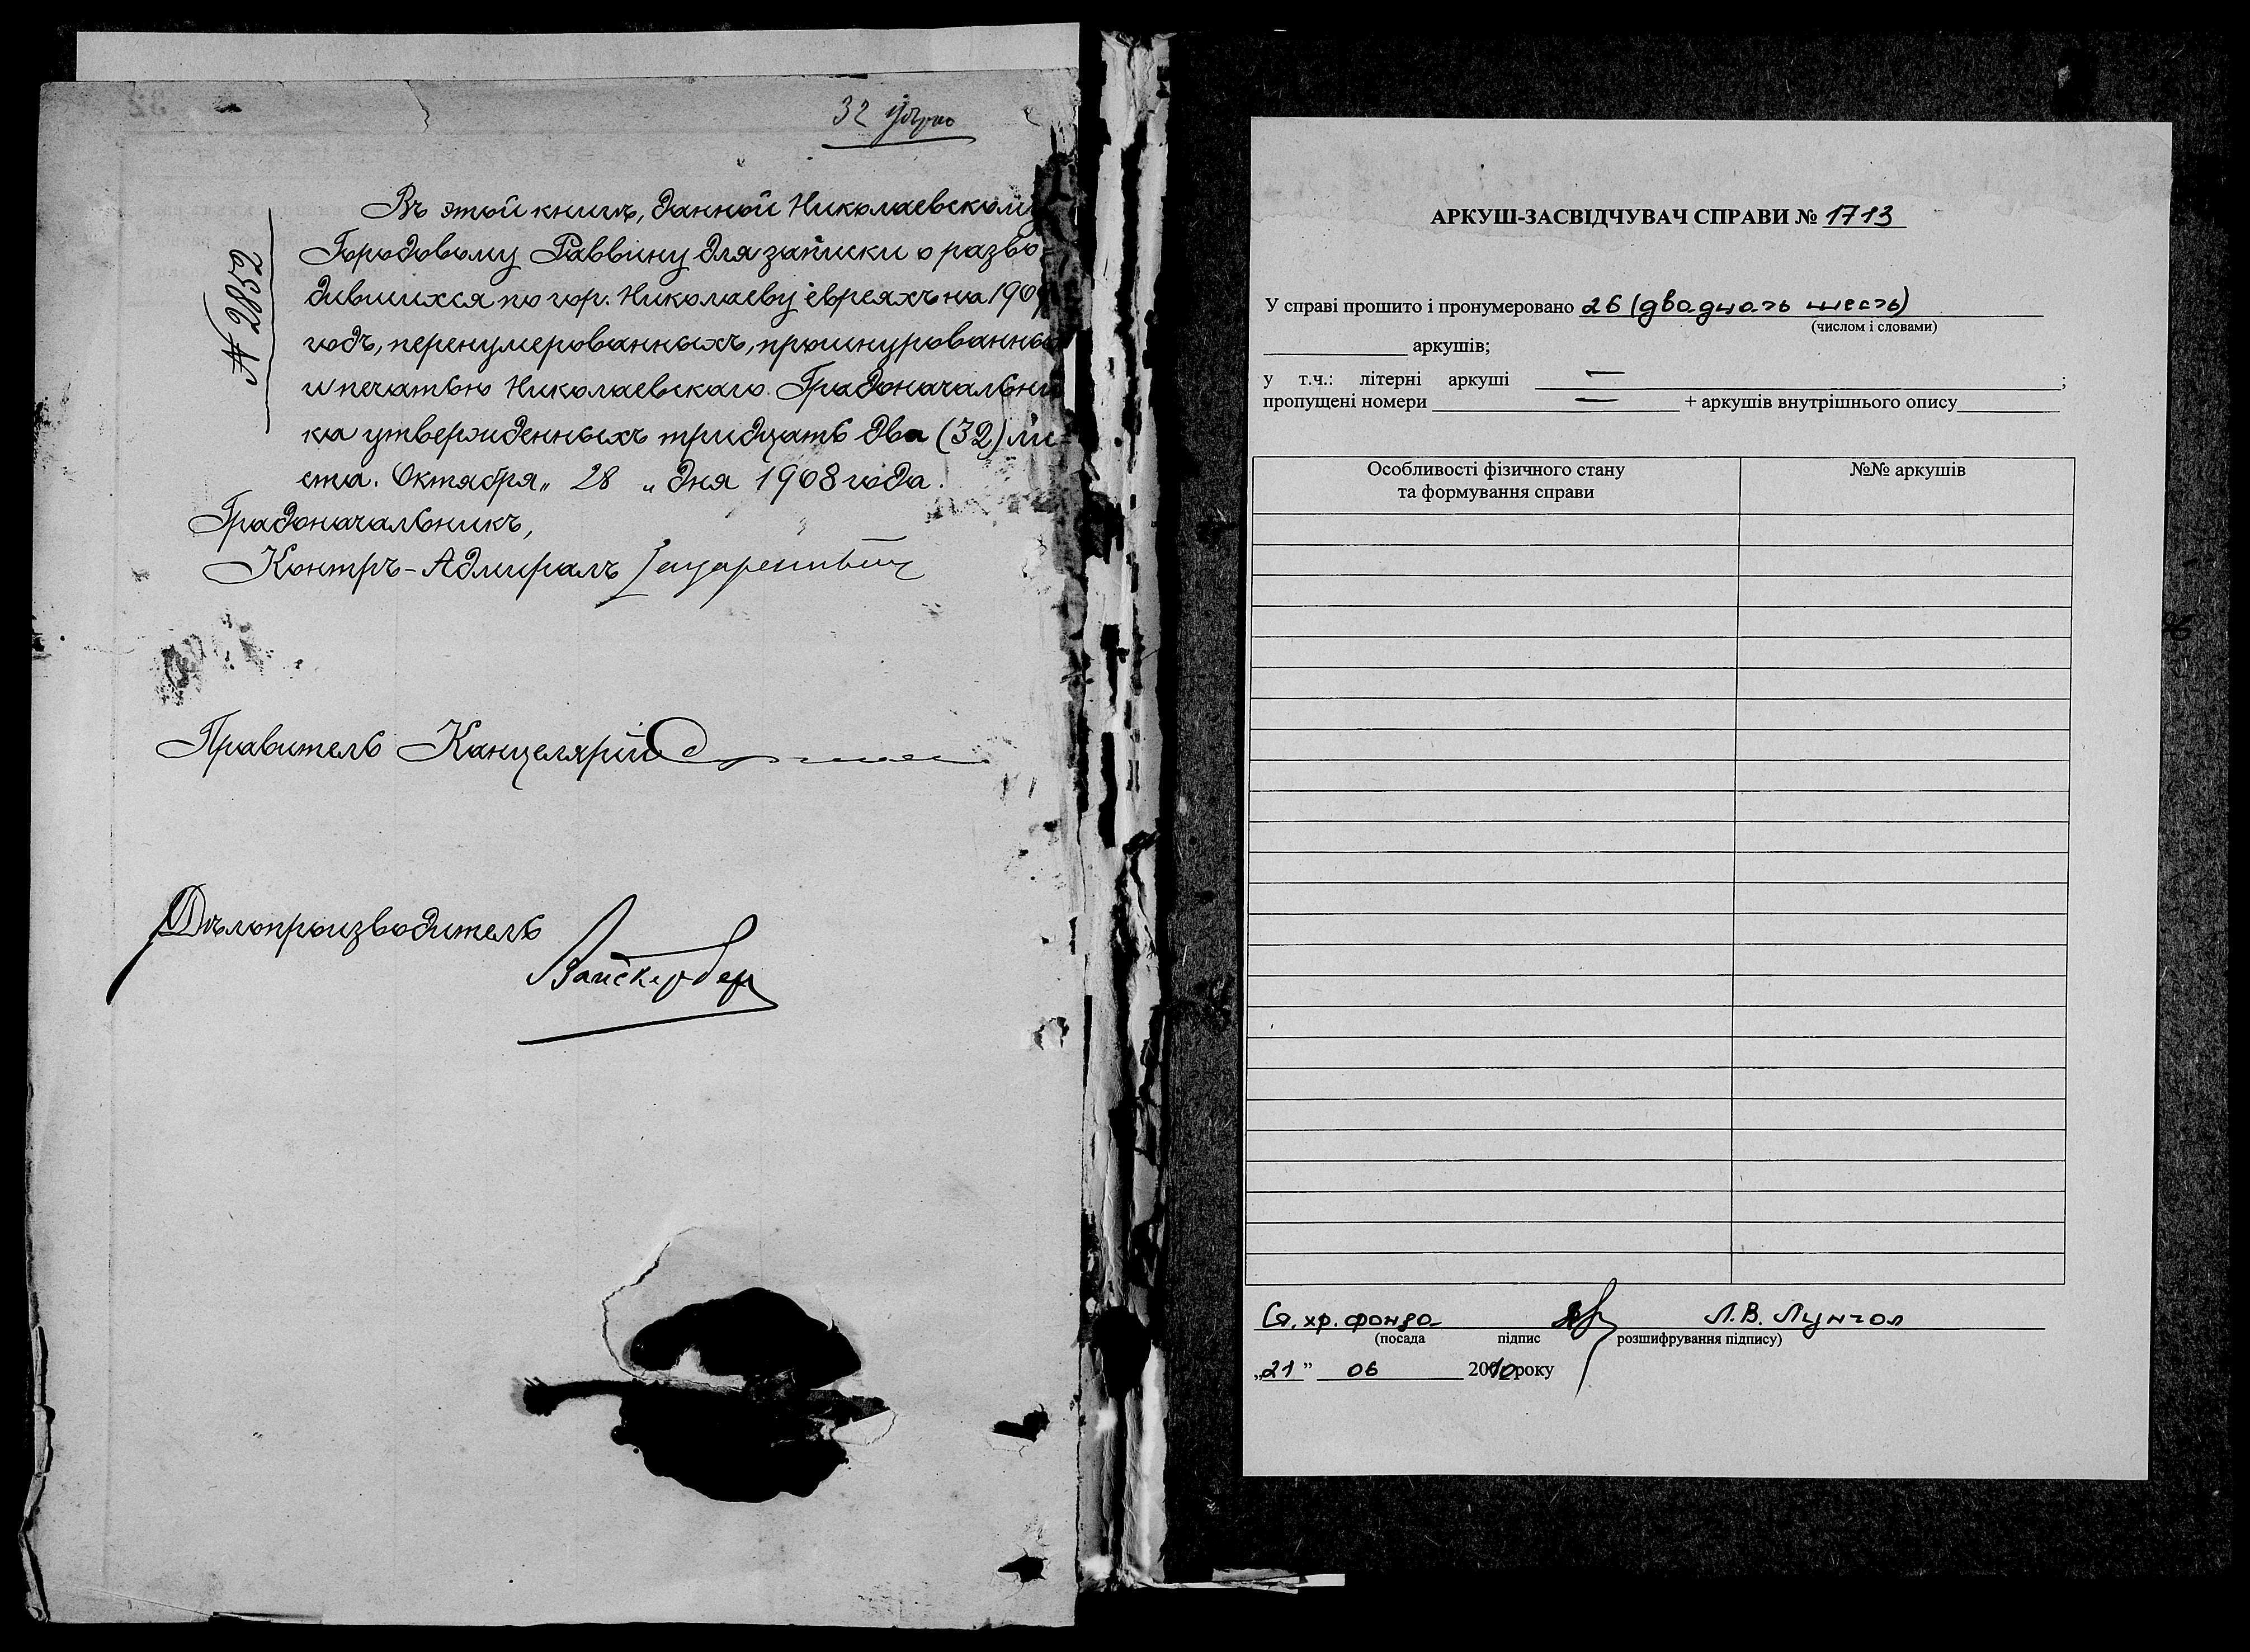 32
Въ этой книгѣ, данной Николаевскому
Городовому Раввину для записки о разво-
дившихся по гор. Николаеву евреяхъ на 1909
годъ, перенумерованныхъ, прошнурованныхъ
и печатью Николаевскаго Градоначальни-
ка утвержденныхъ тридцать два (32) ли-
ста. Октября „ 28 „ дня 1908 года.
№ 2852
Градоначальникъ,
Контръ-Адмиралъ
Правитель Канцеляріи
Дѣлопроизводитель
АРКУШ-ЗАСВІДЧУВАЧ СПРАВИ № 1713
У справі прошито і пронумеровано 26 (двадцать шесть)
(числом і словами)
аркушів;
у т.ч.: літерні аркуші — ;
пропущені номери — + аркушів внутрішнього опису
Особливості фізичного стану №№ аркушів
та формування справи
Ст. хр. фонда Л.В. Лунгол
(посада підпис розшифрування підпису)
„21” 06 2010 року